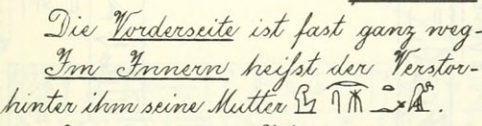 Die Vorderseite ist fast ganz weg-
Im Innern heißt der Verstor-
hinter ihm seine Mutter